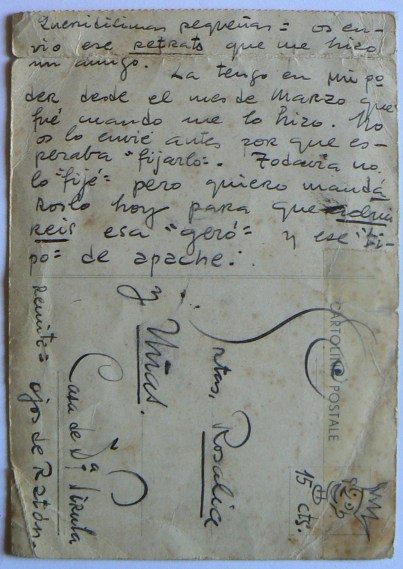 Queridísimas pequeñas= os en-
vío ese retrato que me hizo
un amigo.
La tengo en mi po
der desde el mes de Marzo que
fué cuando me lo hizo. No
os lo envié antes por que es-
peraba "fijarlo". Todavía no
lo "fijé" pero quiero mandá
roslo hoy para que
reis esa "geró" y ese "ti-
po" de apache.
CARTOLINE POSTALE
15 cts.
Srtas. Rosalía
y Uñas.
Casa de Dª Pirula
Remite= ojos de Ratón.